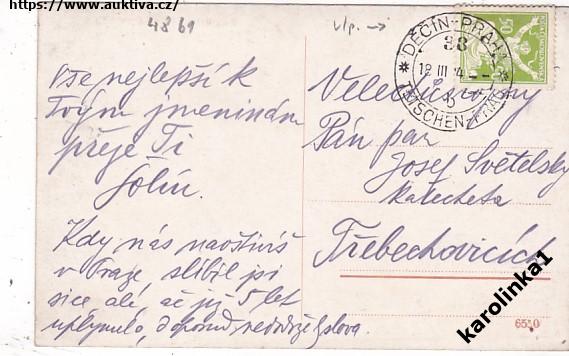 https://www.auktiva.cz/
4869
vlp. →
DĚČÍN-PRAHA
38
18 III
TETSCHEN-PRAG
50
Vše nejlepší k
Tvým jmeninám
přeje Ti
Kdy nás navštívíš
v Praze, slíbil jsi
sice ale, ač již 5 let
uplynulo, doposud nedodržel slova.
Velectihodný
Pán pan
Josef Světelský
katecheta
Třebechovicích
6510
karolinka1